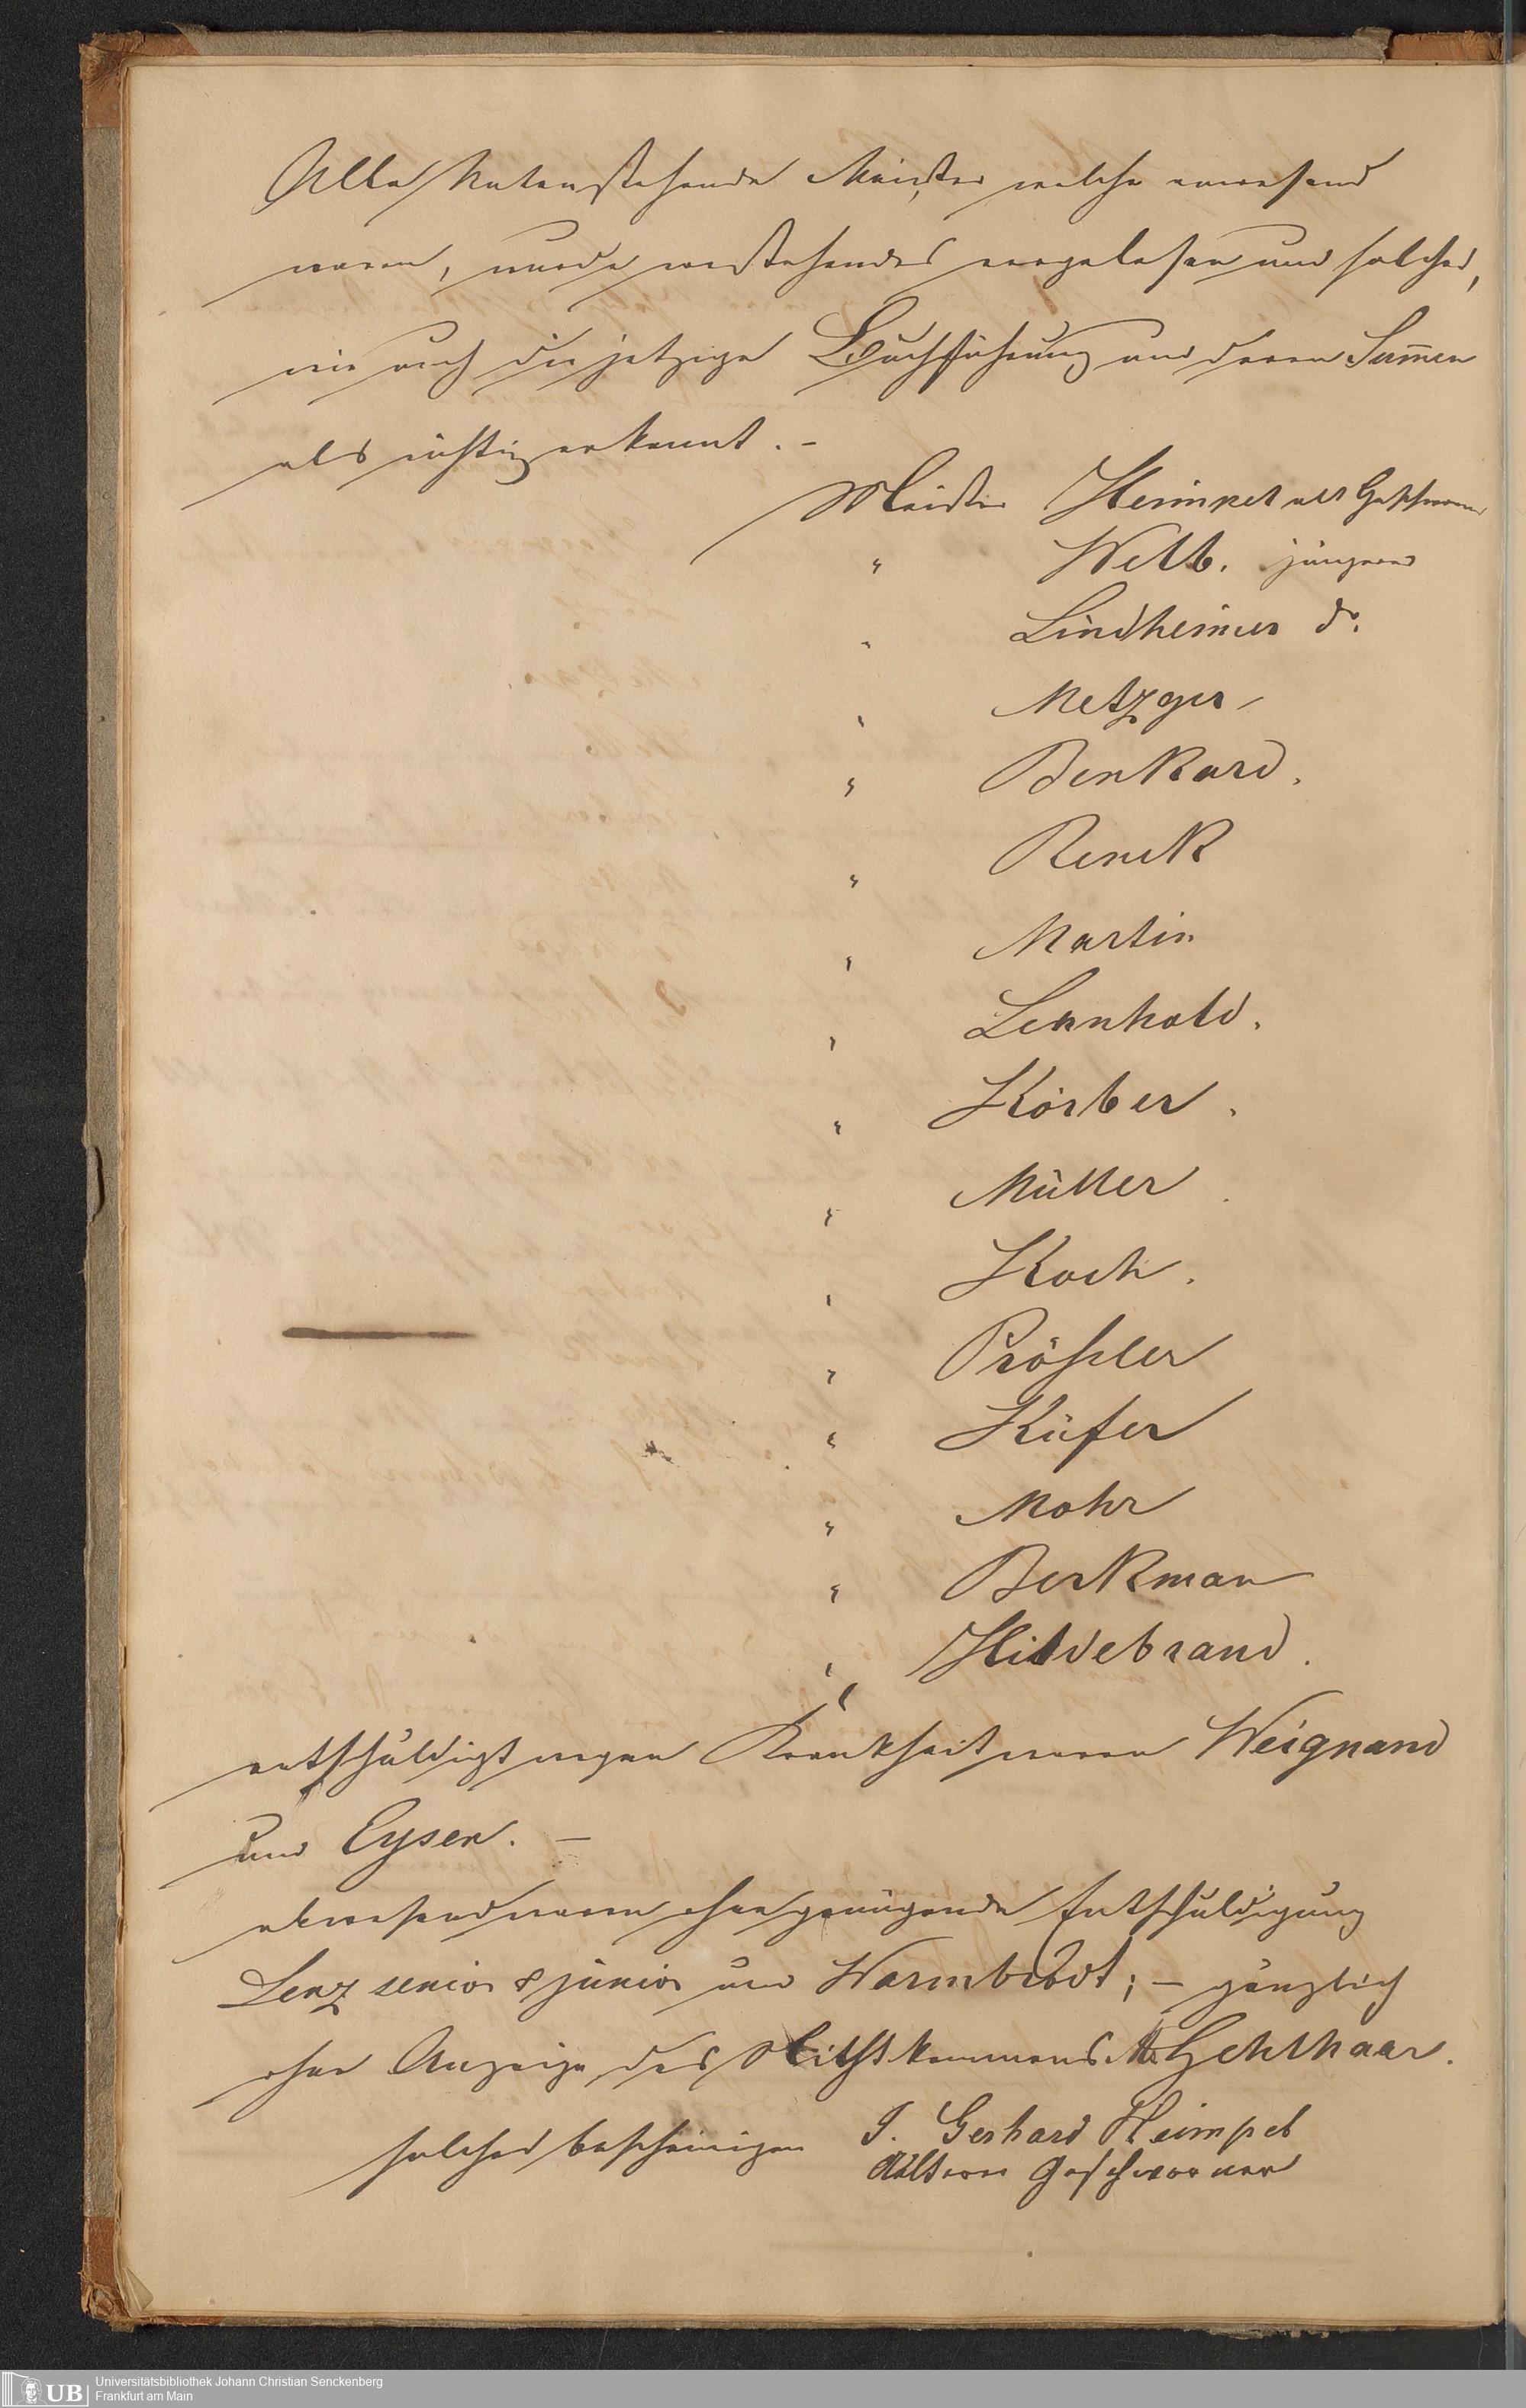 Alle Untenstehende Meister welche anwesend
waren, wurde vorstehendes vorgelesen und solches,
wie auch die jetzige Buchführung und deren Sum̄en
als richtig erkannt. –
Meister Heimpel als Geschworn
" Welb. jüngerer
" Lindheimer do.
" Metzger
" Benkard.
" Renck
" Martin
" Leonhold.
" Körber.
" Müller.
" Koch.
" Prößler
" Küfer
" Mohr
" Berkman
" Hildebrand.
entschuldigt wegen Krankheit waren Weignand
und Eysen. –
abwesend waren ohne genügende Entschuldigung
Lenz senior & junior und Warmboldt; – gänzlich
ohne Anzeige des Nichtkommens M. Gehlhaar.
solches bescheinigen J. Gerhard Heimpel
Älterer Geschworner